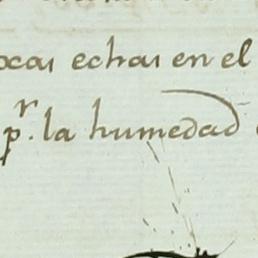 echas en el
pr. la humedad